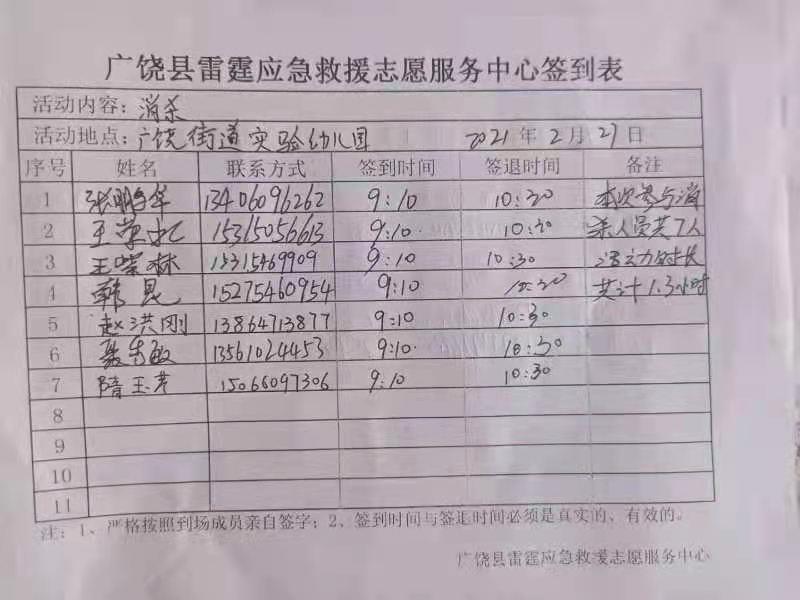 广饶县雷霆应急救援志愿服务中心签到表
活动内容：消杀
活动地点：广饶街道实验幼儿园 2021年2月27日
序号 姓名 联系方式 签到时间 签退时间 备注
1 张鹏华 13406096262 9:10 10:30 本次参与消
2 王荣 15315056613 9:10 10:30 杀人员共7人
3 王 林 13315469909 9:10 10:30 活动时长
4 韩昆 15275460954 9:10 10:30 共计1.3小时
5 赵洪刚 13864713877 9:10 10:30
6 聂 敏 13561024453 9:10 10:30
7 隋玉芹 15066097306 9:10 10:30
8
9
10
11
注：1、严格按照到场成员亲自签字；2、签到时间与签退时间必须是真实的、有效的。
广饶县雷霆应急救援志愿服务中心